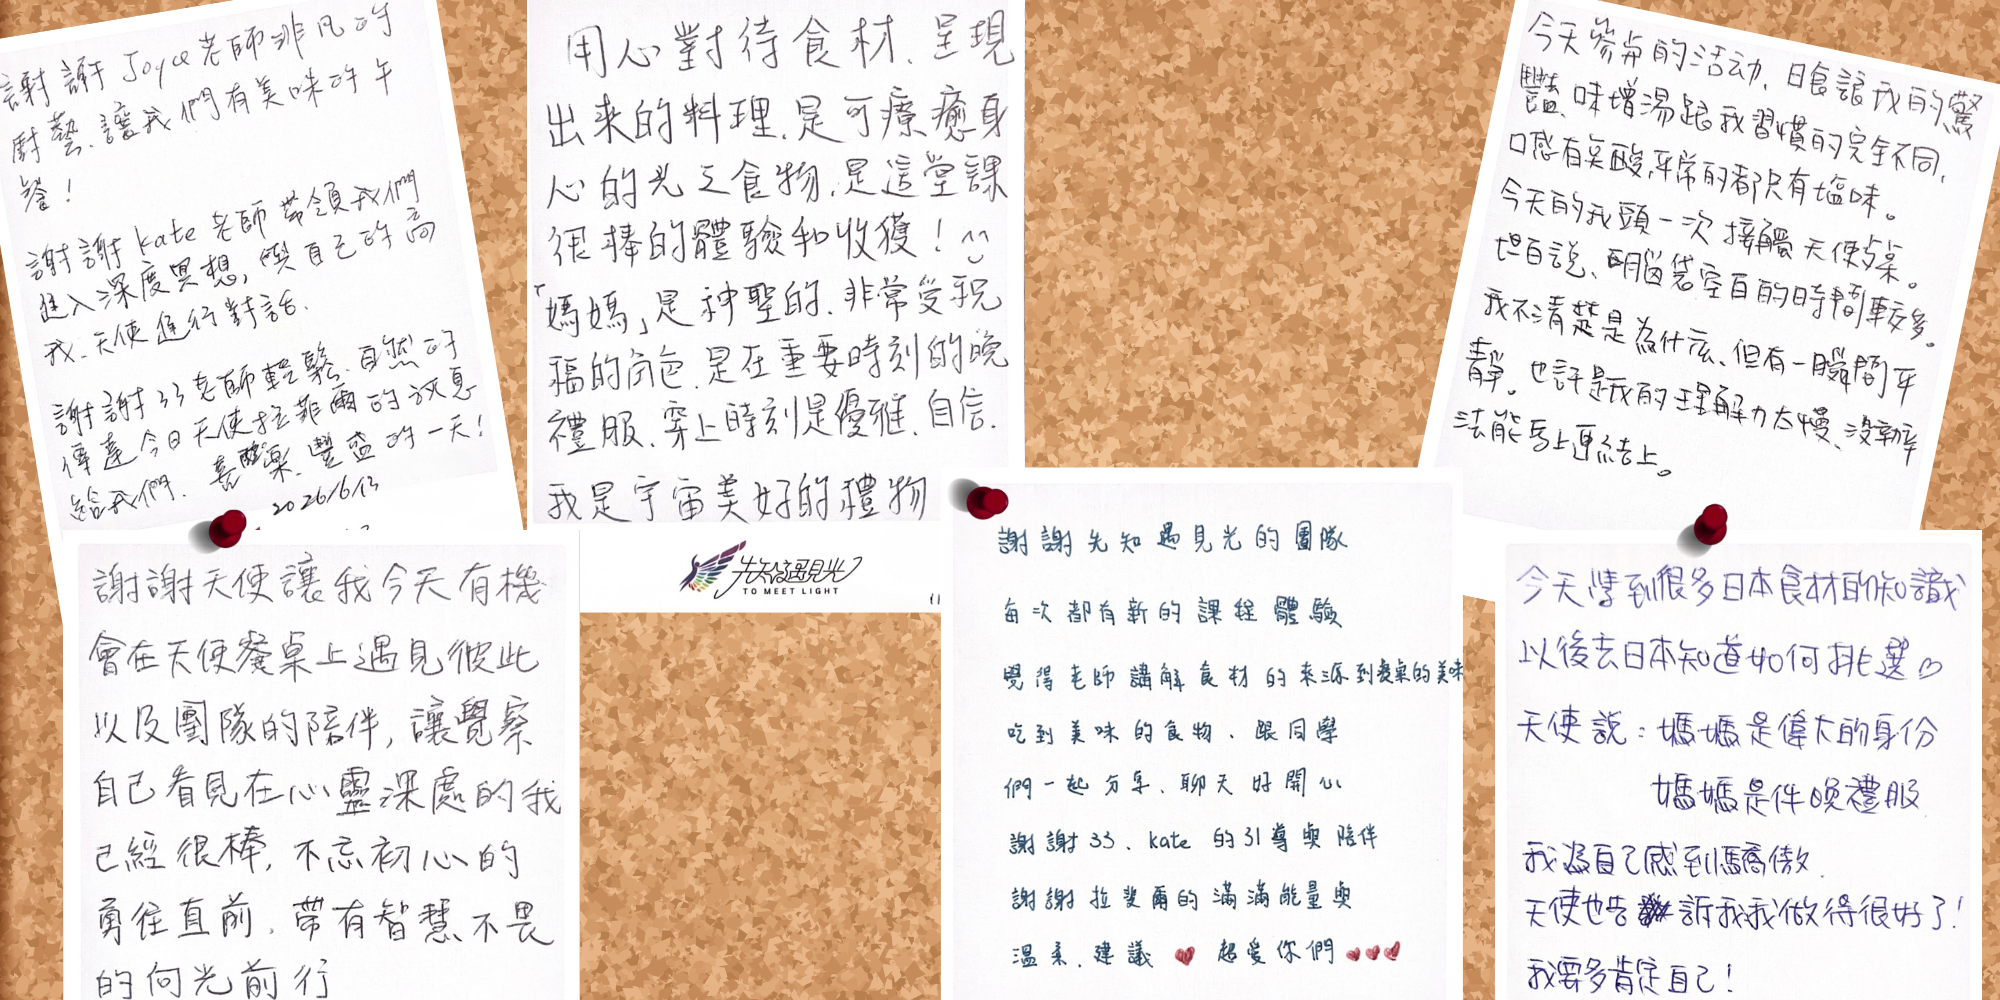 謝謝 Joyce 老師非凡的
廚藝、讓我們有美味的午
餐!
謝謝 kate 老師帶領我們
進入深度冥想,與自己的高
我、天使進行對話.
謝謝33老師輕鬆、自然的
傳達今日天使拉菲爾的訊息
給我們. 喜樂、豐盛的一天!
2026/6/13
用心對待食材、呈現
出來的料理.是可療癒身
心的光之食物.是這堂課
很棒的體驗和收獲! ^^
「媽媽」是神聖的.非常受祝
福的角色.是在重要時刻的晚
禮服.穿上時刻是優雅.自信.
我是宇宙美好的禮物
先知遇見光
TO MEET LIGHT
今天參與的活动,日食讓我的驚
豔.味增湯跟我習慣的完全不同,
口感有英酸,平常的都只有塩味。
今天的我頭一次接觸天使桌。
坦白說、腦袋空白的時間較多。
我不清楚是為什麼、但有一瞬間平
靜。也許是我的理解力太慢、沒辦
法能馬上連結上。
謝謝天使讓我今天有機
會在天使餐桌上遇見彼此
以及團隊的陪伴,讓覺察
自己看見在心靈深處的我
已經很棒,不忘初心的
勇往直前.帶有智慧不畏
的向光前行
謝謝先知遇見光的團隊
每次都有新的課程體驗
覺得老師講解食材的來源到餐桌的美味
吃到美味的食物、跟同學
們一起分享、聊天好開心
謝謝33、kate 的引導與陪伴
謝謝拉斐爾的滿滿能量與
溫柔.建議 ♥ 超愛你們 ♥♥♥
今天學到很多日本食材的知識
以後去日本知道如何挑選♡
天使說:媽媽是偉大的身份
媽媽是件晚禮服
我為自己感到驕傲.
天使也告訴我我做得很好了!
我要多肯定自己!